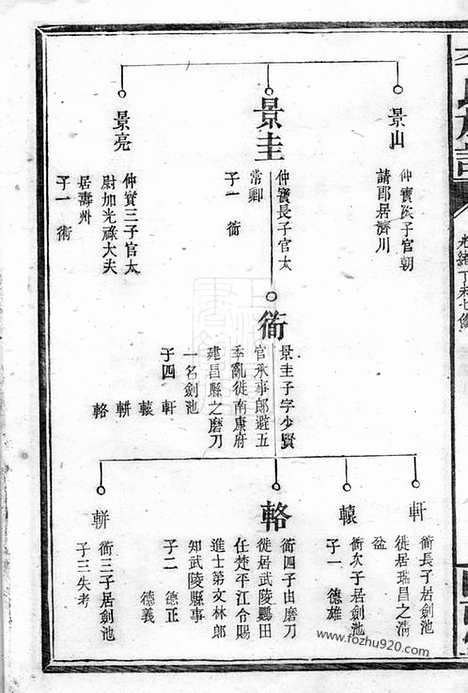 景山
仲寶次子官朝
請郎居濟川
景圭
仲寶長子官太
常卿
子一　衜
景亮
仲寶三子官太
尉加光祿大夫
居壽州
子一　術
衜
景圭子字少賢
官承事郎避五
季亂徙南康府
建昌縣之磨刀
一名劍池
子四　軒
轅
軿
輅
軒
衜長子居劍池
徙居瑞昌之清
盆
轅
衜次子居劍池
子一　德雄
輅
衜四子由磨刀
徙居武陵鸜田
任楚平江令賜
進士第文林郎
知武陵縣事
子二　德正
德義
軿
衜三子居劍池
子三失考
www.fozhu920.com